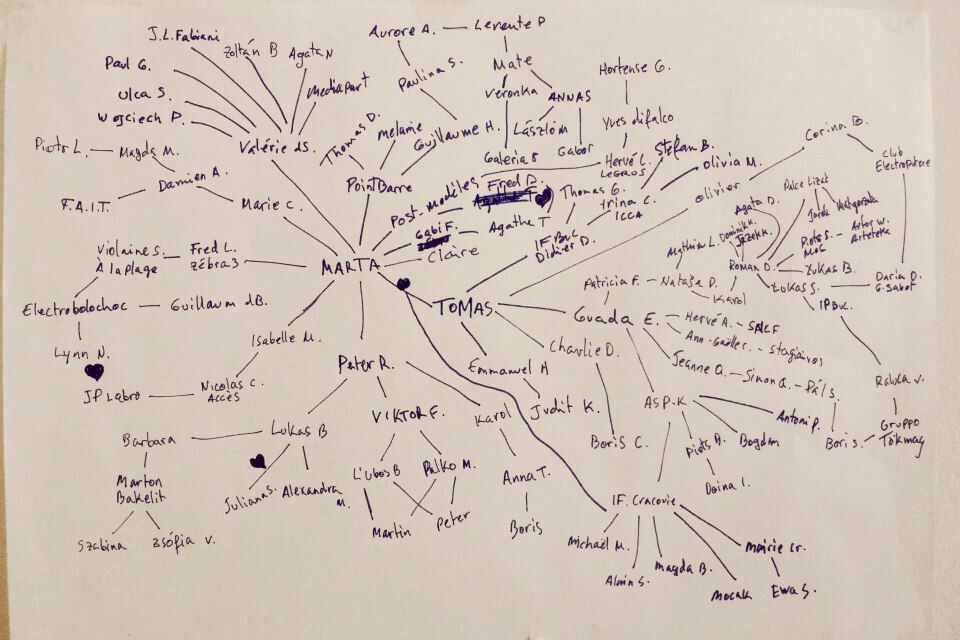 Aurore A. Lerente P
J.L. Fabiani
Zoltán B
Agata N
Paul G.
Paulina S.
Mate
Hortense G.
Mediapart
Ulca S.
Veronka
ANNAS
Wojciech P.
Thomas D.
melanie
Guillaume H.
László M
Gabor
Yves difalco
Corina B.
Piotr L. Magda M.
Valérie dS.
Galeria 8
Hervé L.
LEGROS
Stefan B.
Olivia M.
Club
Electroputere
Damien A.
PointBarre
Post-Modèles
Fred D.
Thomas G.
Yrina C.
ICCA
Olivier
F.A.I.T.
Marie C.
Gabi F.
Agathe T
Agata D.
Dominik K.
Jazek K.
Claire
IF Buc
Didier D.
Mathieu L.
Artur W.
Arteteka
Violaine S.
À la plage
Fred L.
Zébra3
MARTA
Patricia F. Nataša D.
Roman D.
Łukas B.
Karol
Łukas S.
IP Buc.
Daria D.
G. Sabot
Electrobolochoc Guillaum dB.
TOMAS
Guada E.
Hervé A. - SNCF
Ann-Gaëlle C. - Stagiaires
Lynn N.
Isabelle M.
Charlie D.
Jeanne Q. - Simon Q. - Pál S.
Peter R.
Emmanuel H
Raluca V.
JP Labro
Nicolas C.
Accès
ASP.K
Antoni P.
VIKTOR F.
Karol
Judit K.
Gruppo
Tökmag
Barbara
Lukas B
Boris C.
Piotr A.
Bogdan
Boris
L'ubos B
Palko M.
Anna T.
Doina I.
Marton
Bakelit
Juliana S.
Alexandra
M.
IF. Cracovie
Szabina
Zsófia V.
Martin
Peter
Boris
Michaël M.
mairie cr.
Alain S.
Magda B.
Mocak
Ewa S.